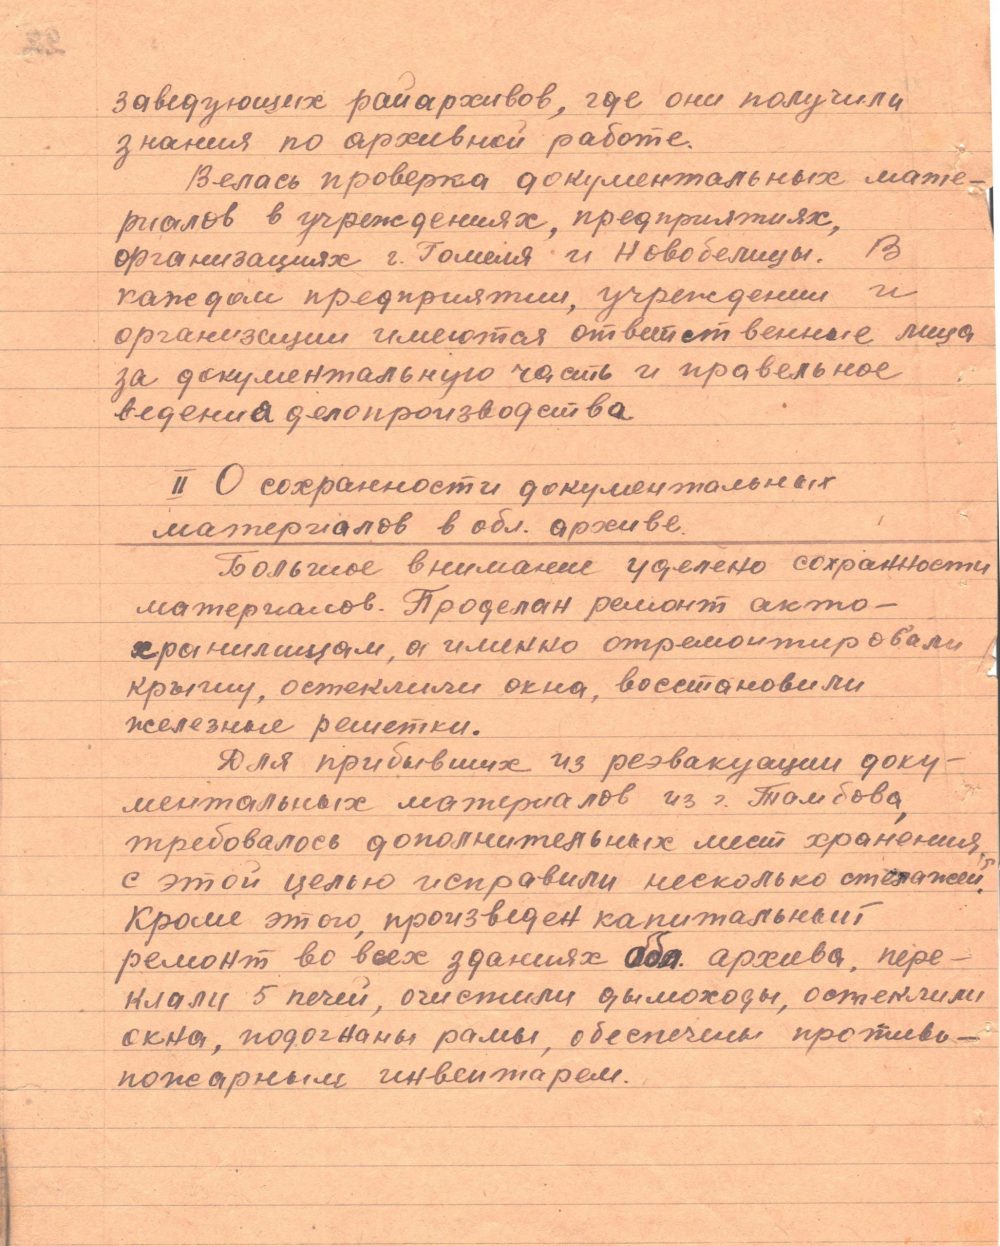 заведующих райархивов, где они получили
знания по архивной работе.
Велась проверка документальных мате-
риалов в учреждениях, предприятиях,
организациях г. Гомеля и Новобелицы. В
каждом предприятии, учреждении и
организации имеются ответственные лица
за документальную часть и правельное
ведения делопроизводства
II О сохранности документальных
материалов в обл. архиве.
Большое внимание уделено сохранности
материалов. Проделан ремонт акто-
хранилищам, а именно отремонтировали
крышу, остеклили окна, восстановили
железные решетки.
Для прибывших из реэвакуации доку-
ментальных материалов из г. Тамбова,
требовалось дополнительных мест хранения,
с этой целью исправили несколько стелажей.
Кроме этого, произведен капитальный
ремонт во всех зданиях обл. архива, пере-
клали 5 печей, очистили дымоходы, остеклили
окна, подогнаны рамы, обеспечены противо-
пожарным инвентарем.